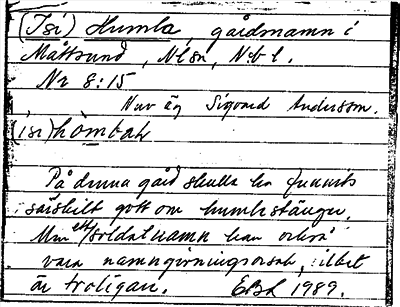 (Isi) Humla, gårdnamn i
Måttsund, Nlsn, Nbl.
Nr 8:15
Nuv äg Sigvard Andersson.
(isi) hombak
På denna gård skulle ha funnits
särskilt gott om humlestänger.
Men ett soldatnamn kan också
vara namngivningsorsak, vilket
är troligare. EBH 1989.